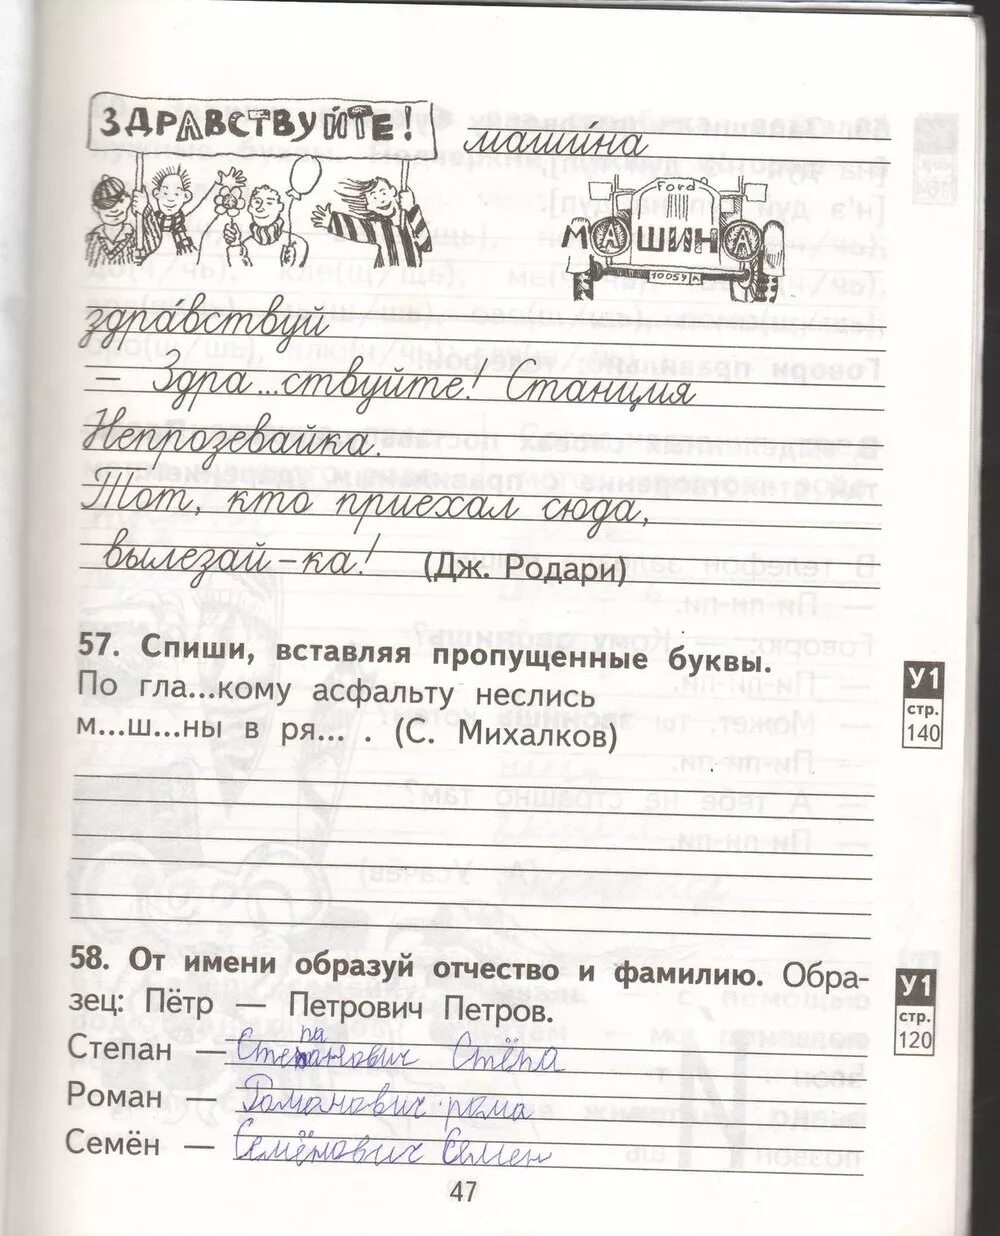 ЗДРАВСТВУЙТЕ!
маши́на
Ford
МАШИНА
10059 А
здра́вствуй
– Здра...ствуйте! Станция
Непрозевайка.
Тот, кто приехал сюда,
вылезай-ка! (Дж. Родари)
57. Спиши, вставляя пропущенные буквы.
По гла...кому асфальту неслись
м...ш...ны в ря... . (С. Михалков)
У1
стр.
140
58. От имени образуй отчество и фамилию. Обра-
зец: Пётр — Петрович Петров.
У1
стр.
120
Степан — Степанович Стёпа
Роман — Романович рома
Семён — Семёнович Семен
47